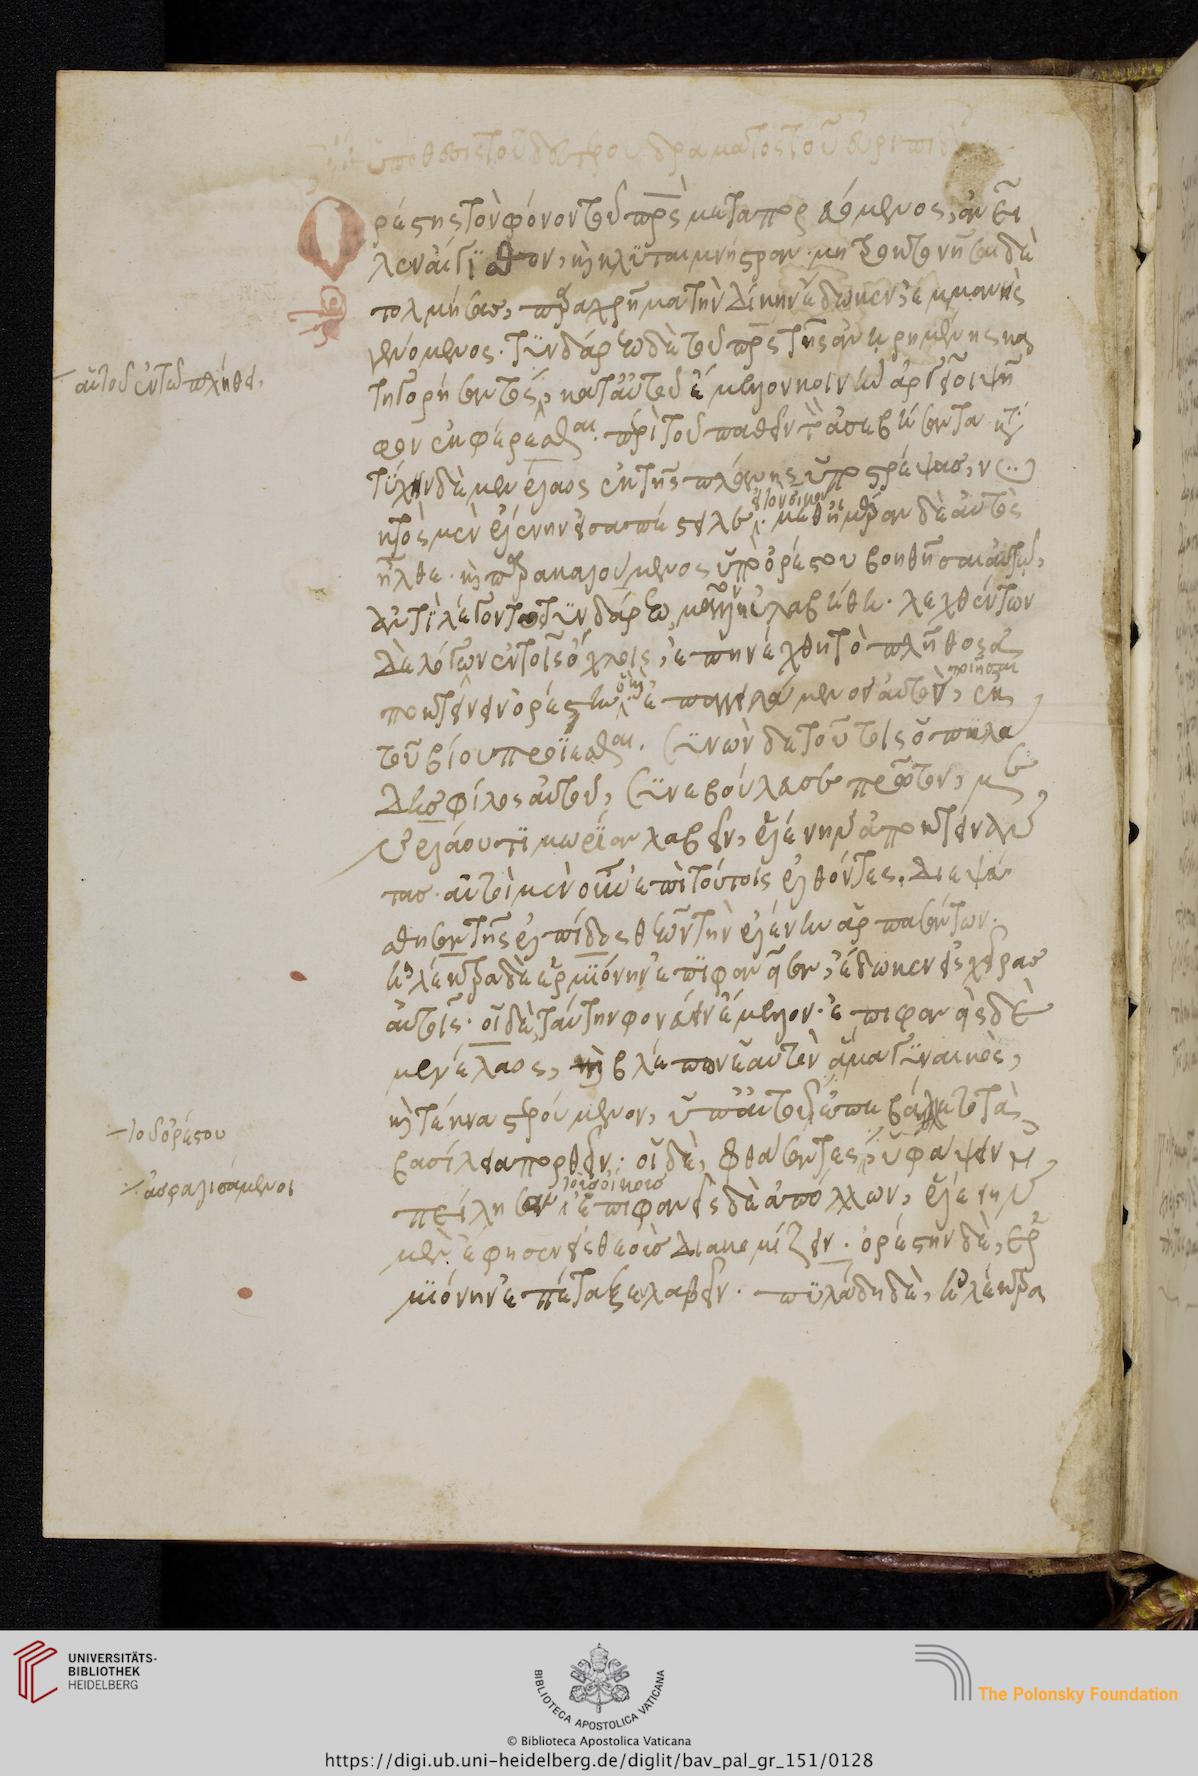 ὑπόθεσις τοῦ δευτέρου δράματος τοῦ εὐριπίδου
Ὀρέστης τὸν φόνον τοῦ πατρὸς μεταπορευόμενος, ἀνεῖ
λεν αἴγισθον, καὶ κλυταιμνήστραν· μητροκτονῆσαι δὲ
τολμήσας, παραχρῆμα τὴν δίκην ἔδωκεν, ἐμμανὴς
γενόμενος. τυνδάρεω δὲ τοῦ πατρὸς τῆς ἀνῃρημένης κα
τηγορήσαντος, κατ' αὐτοῦ ἔμελλον κοινὴν ἀργεῖοι ψῆ
φον ἐκφέρεσθαι. περὶ τοῦ παθεῖν τὸν ἀσεβήσαντα. κατὰ
τύχην δὲ μενέλαος ἐκ τῆς πλάνης ὑποστρέψας, ν(..)
κτὸς μὲν ἑλένην εἰσαπέστειλε. μεθ' ἡμέραν δὲ αὐτὸς
εἰς τὸν οἶκον
ἦλθε. καὶ παρακαλούμενος ὑπὸ ὀρέστου βοηθῆσαι αὐτῷ,
ἀντιλέγοντα τυνδάρεω, μᾶλλον εὐλαβήθη. λεχθέντων
δὲ λόγων ἐν τοῖς ὄχλοις, ἐπηνέχθη τὸ πλῆθος ἀ
ποιῆσαι
ποκτείνειν ὀρέστην ἐπαγγειλάμενος αὐτὸν, ἐκ
τοῦ βίου προΐεσθαι. συνὼν δὲ τούτοις ὁ πυλά
δης φίλος αὐτοῦ, συνεβούλευσε πρῶτον, με
νελάου τιμωρίαν λαβεῖν, ἑλένην ἀποκτείναν
τας. αὐτοὶ μὲν οὖν ἐπὶ τούτοις ἐλθόντες, διεψεύ
σθησαν τῆς ἐλπίδος θεῶν τὴν ἑλένην ἁρπασάντων.
ἠλέκτρα δὲ ἑρμιόνην ἐπιφανεῖσαν, ἔδωκεν εἰς χεῖρας
αὐτοῖς. οἱ δὲ ταύτην φονεύειν ἔμελλον. ἐπιφανεὶς δὲ
μενέλαος, καὶ βλέπων ἑαυτὸν ἅμα γυναικὸς,
καὶ τέκνα στερούμενον, ὑπ' αὐτῶν ἐπεβάλλετο τὰ
βασίλεια πορθεῖν· οἱ δὲ, φθάσαντες ὑφάψειν ἠ
πείλησαν. ἐπιφανεὶς δὲ ἀπόλλων, ἑλένην
μὲν ἔφησεν εἰς θεοὺς διακομίζειν. ὀρέστην δὲ, ἑρ
μιόνην ἐπέταξε λαβεῖν. πυλάδῃ δὲ, ἠλέκτρα
αὐτοῦ ἐν τῷ πλήθει.
τοῦ ὀρέστου
ἀσφαλισάμενοι
UNIVERSITÄTS-
BIBLIOTHEK
HEIDELBERG
BIBLIOTECA APOSTOLICA VATICANA
The Polonsky Foundation
© Biblioteca Apostolica Vaticana
https://digi.ub.uni-heidelberg.de/diglit/bav_pal_gr_151/0128